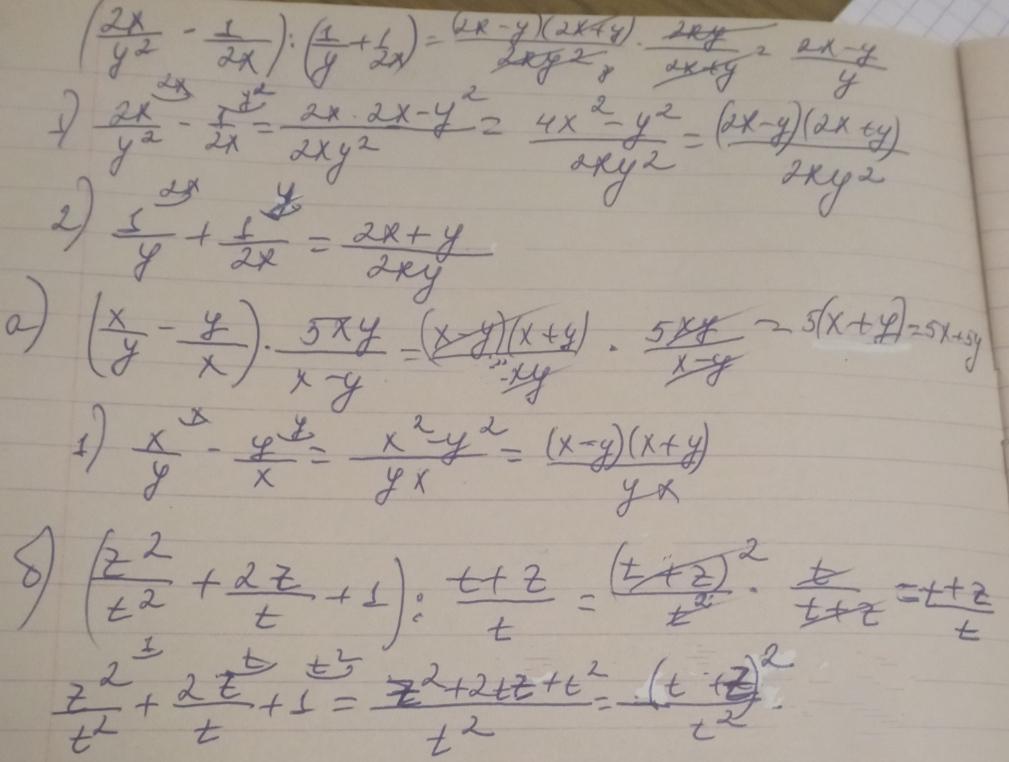 (2x/y² - 1/2x) : (1/y + 1/2x) = (2x-y)(2x+y)/2xy² · 2xy/2x+y = 2x-y/y
1) 2x/y² - 1/2x = 2x·2x-y²/2xy² = 4x²-y²/2xy² = (2x-y)(2x+y)/2xy²
2) 1/y + 1/2x = 2x+y/2xy
а) (x/y - y/x) · 5xy/x-y = (x-y)(x+y)/xy · 5xy/x-y = 5(x+y) = 5x+5y
1) x/y - y/x = x²-y²/yx = (x-y)(x+y)/yx
б) (z²/t² + 2z/t + 1) : t+z/t = (t+z)²/t² · t/t+z = t+z/t
z²/t² + 2z/t + 1 = z²+2tz+t²/t² = (t+z)²/t²